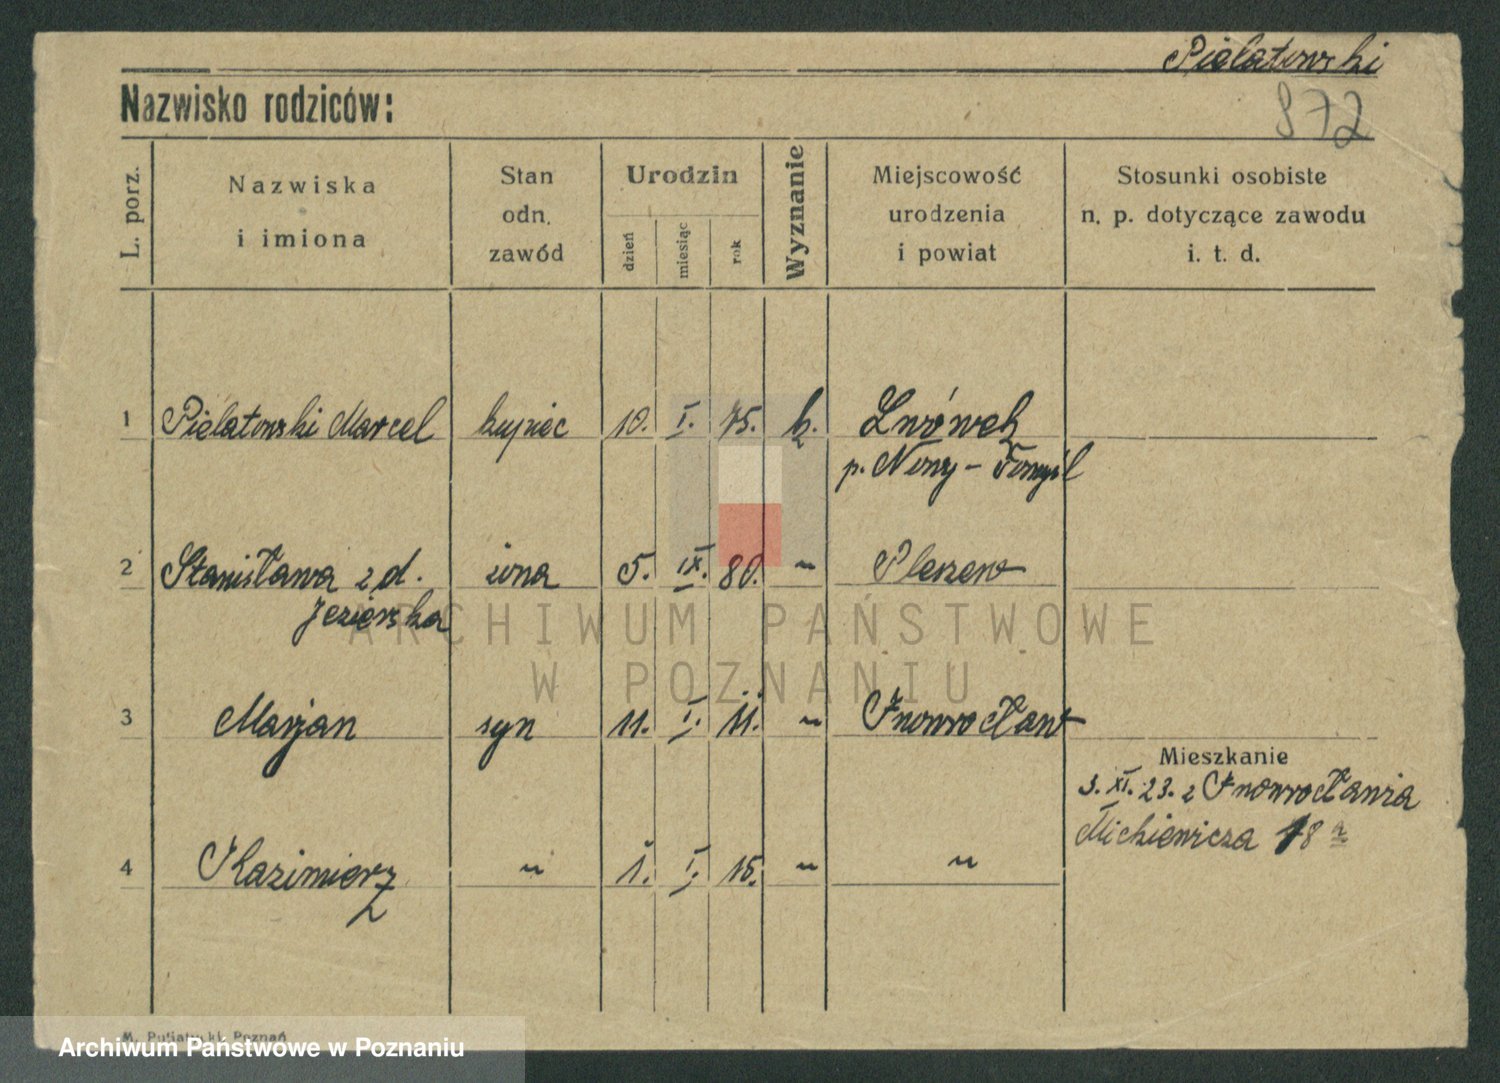 Pielatowski
Nazwisko rodziców:
872
L. porz.
Nazwiska
i imiona
Stan
odn.
zawód
Urodzin
dzień
miesiąc
rok
Wyznanie
Miejscowość
urodzenia
i powiat
Stosunki osobiste
n. p. dotyczące zawodu
i. t. d.
1 Pielatowski Marcel kupiec 10. I. 75. k. Lwówek
p. Nowy-Tomyśl
2 Stanisława z d. żona 5. IX. 80. " Pleszew
Jezierska
3 Marjan syn 11. I. 11. " Inowrocław
Mieszkanie
3. XI. 23. z Inowrocławia
Mickiewicza 18
4 Kazimierz " 1. I. 15. " "
M. Putiatycki, Poznań
ARCHIWUM PAŃSTWOWE
W POZNANIU
Archiwum Państwowe w Poznaniu